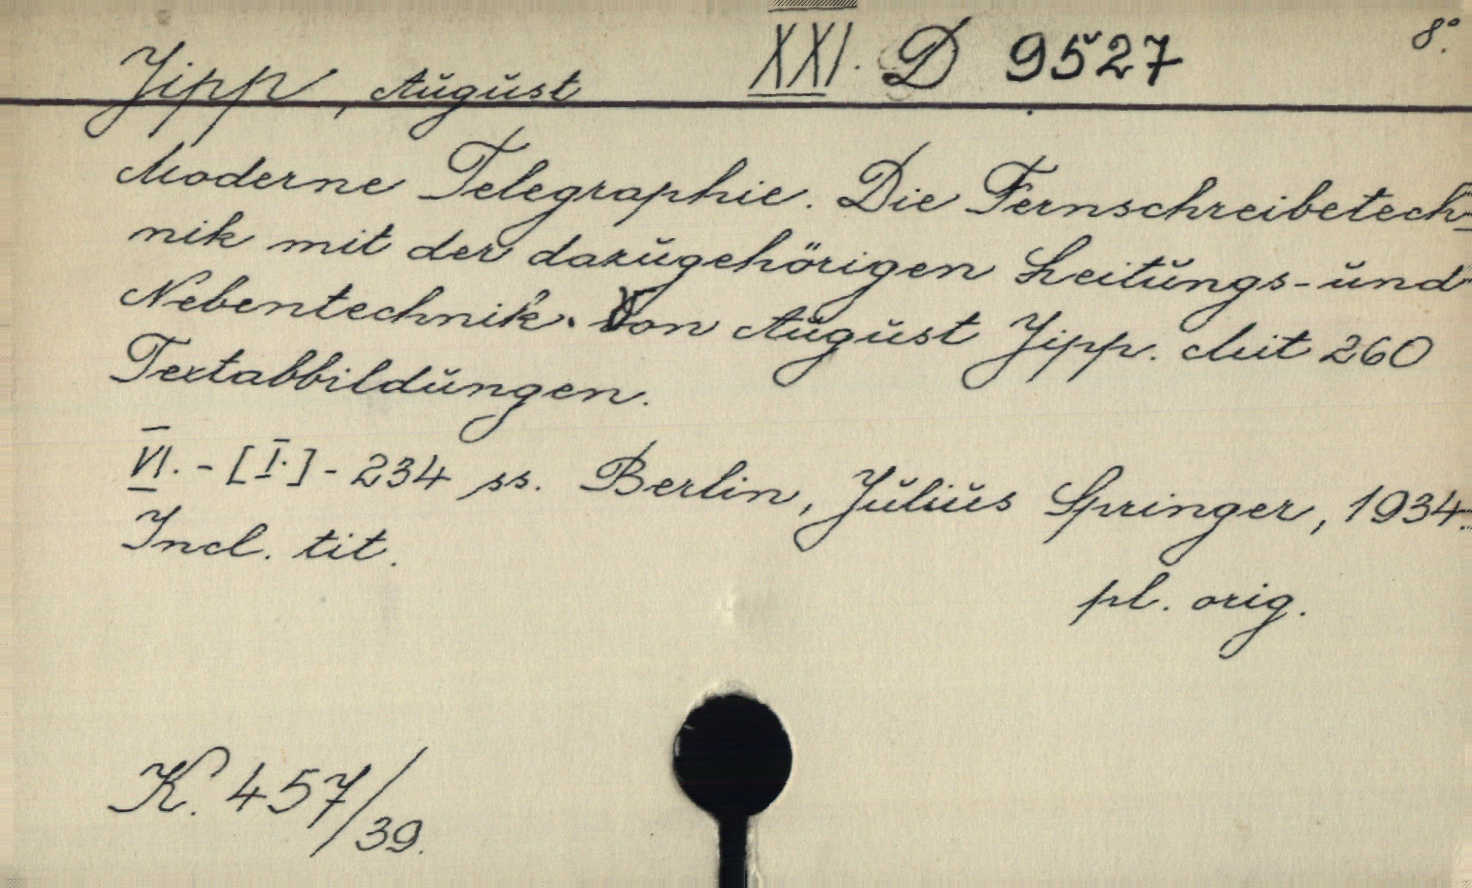 XXI. D 9527
8°.
Jipp, August
Moderne Telegraphie. Die Fernschreibetech-
nik mit der dazugehörigen Leitungs- und
Nebentechnik. Von August Jipp. Mit 260
Textabbildungen.
VI. - [I.] - 234 ss. Berlin, Julius Springer, 1934.
Incl. tit.
pl. orig.
K. 457/39.